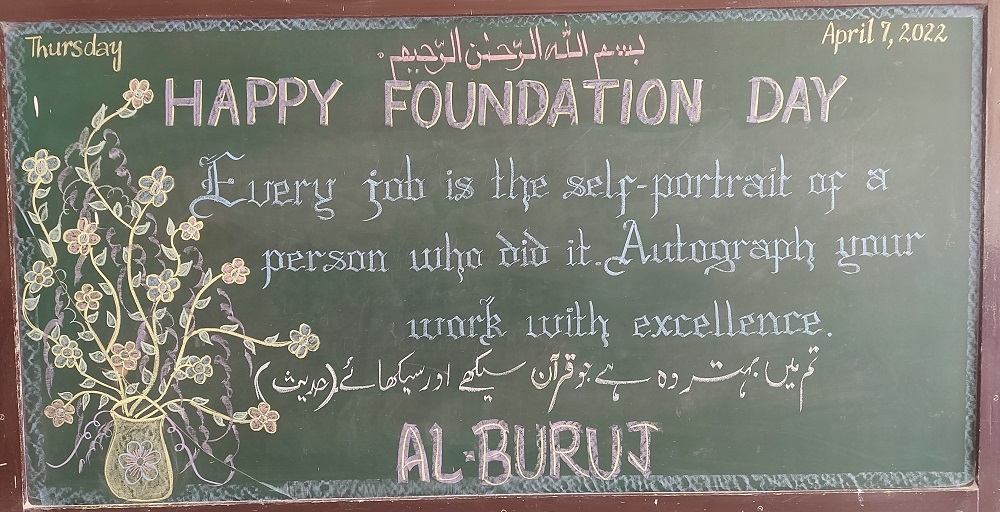 Thursday
April 7, 2022
بسم الله الرّحمٰن الرّحیم
HAPPY FOUNDATION DAY
Every job is the self-portrait of a
person who did it. Autograph your
work with excellence.
تم میں بہتر وہ ہے جو قرآن سیکھے اور سیکھائے (حدیث)
AL-BURUJ